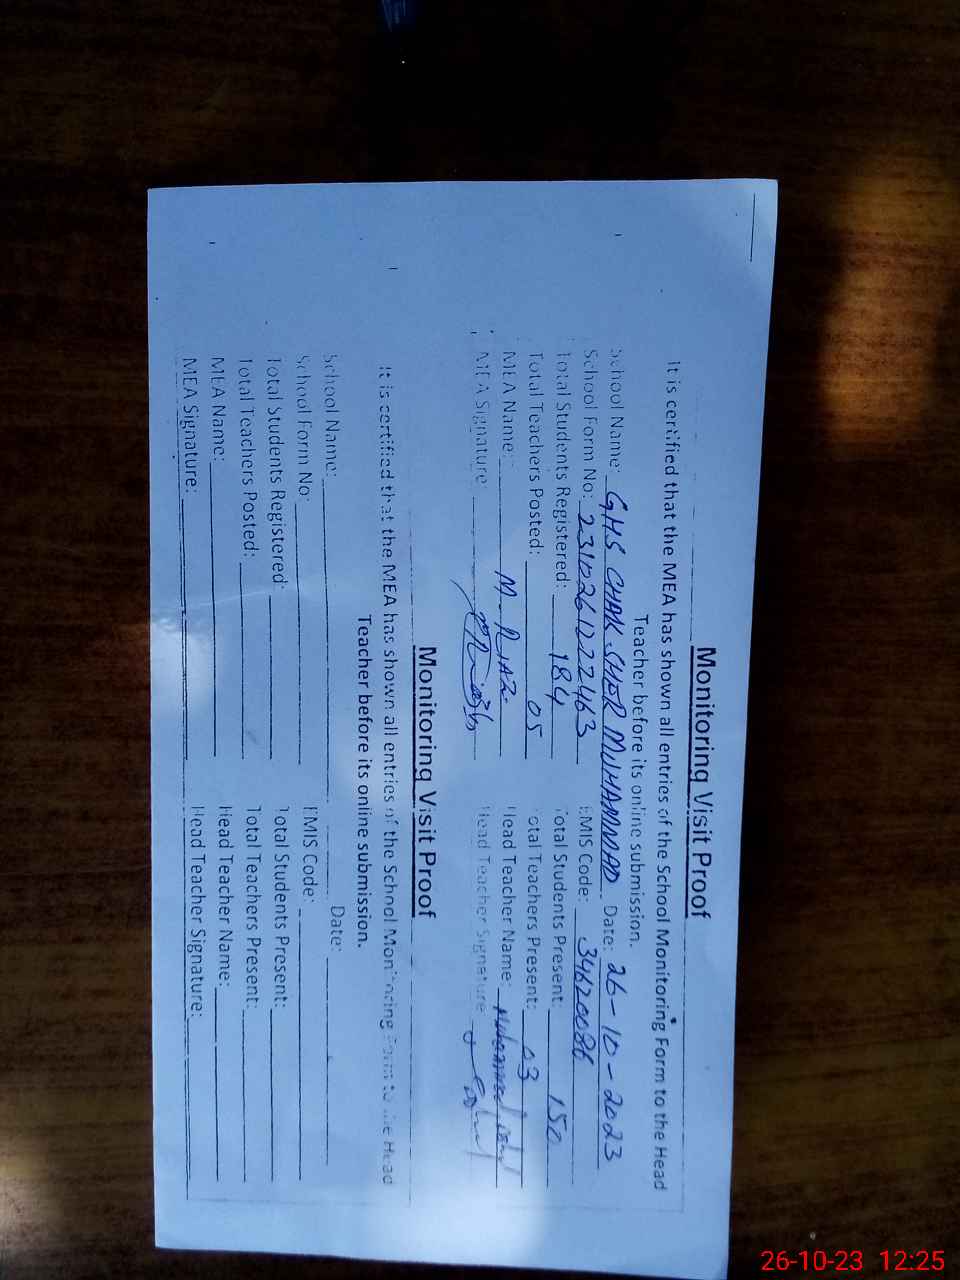 Monitoring Visit Proof
It is certified that the MEA has shown all entries of the School Monitoring Form to the Head
Teacher before its online submission.
School Name: GHS CHAK SHER MUHAMMAD Date: 26-10-2023
School Form No: 2310261222463 EMIS Code: 34620086
Total Students Registered: 184 Total Students Present: 150
Total Teachers Posted: 05 Total Teachers Present: 03
MEA Name: M. Riaz Head Teacher Name: Muhammad
MEA Signature: Head Teacher Signature:
Monitoring Visit Proof
It is certified that the MEA has shown all entries of the School Monitoring Form to the Head
Teacher before its online submission.
School Name: Date:
School Form No: EMIS Code:
Total Students Registered: Total Students Present:
Total Teachers Posted: Total Teachers Present:
MEA Name: Head Teacher Name:
MEA Signature: Head Teacher Signature:
26-10-23 12:25